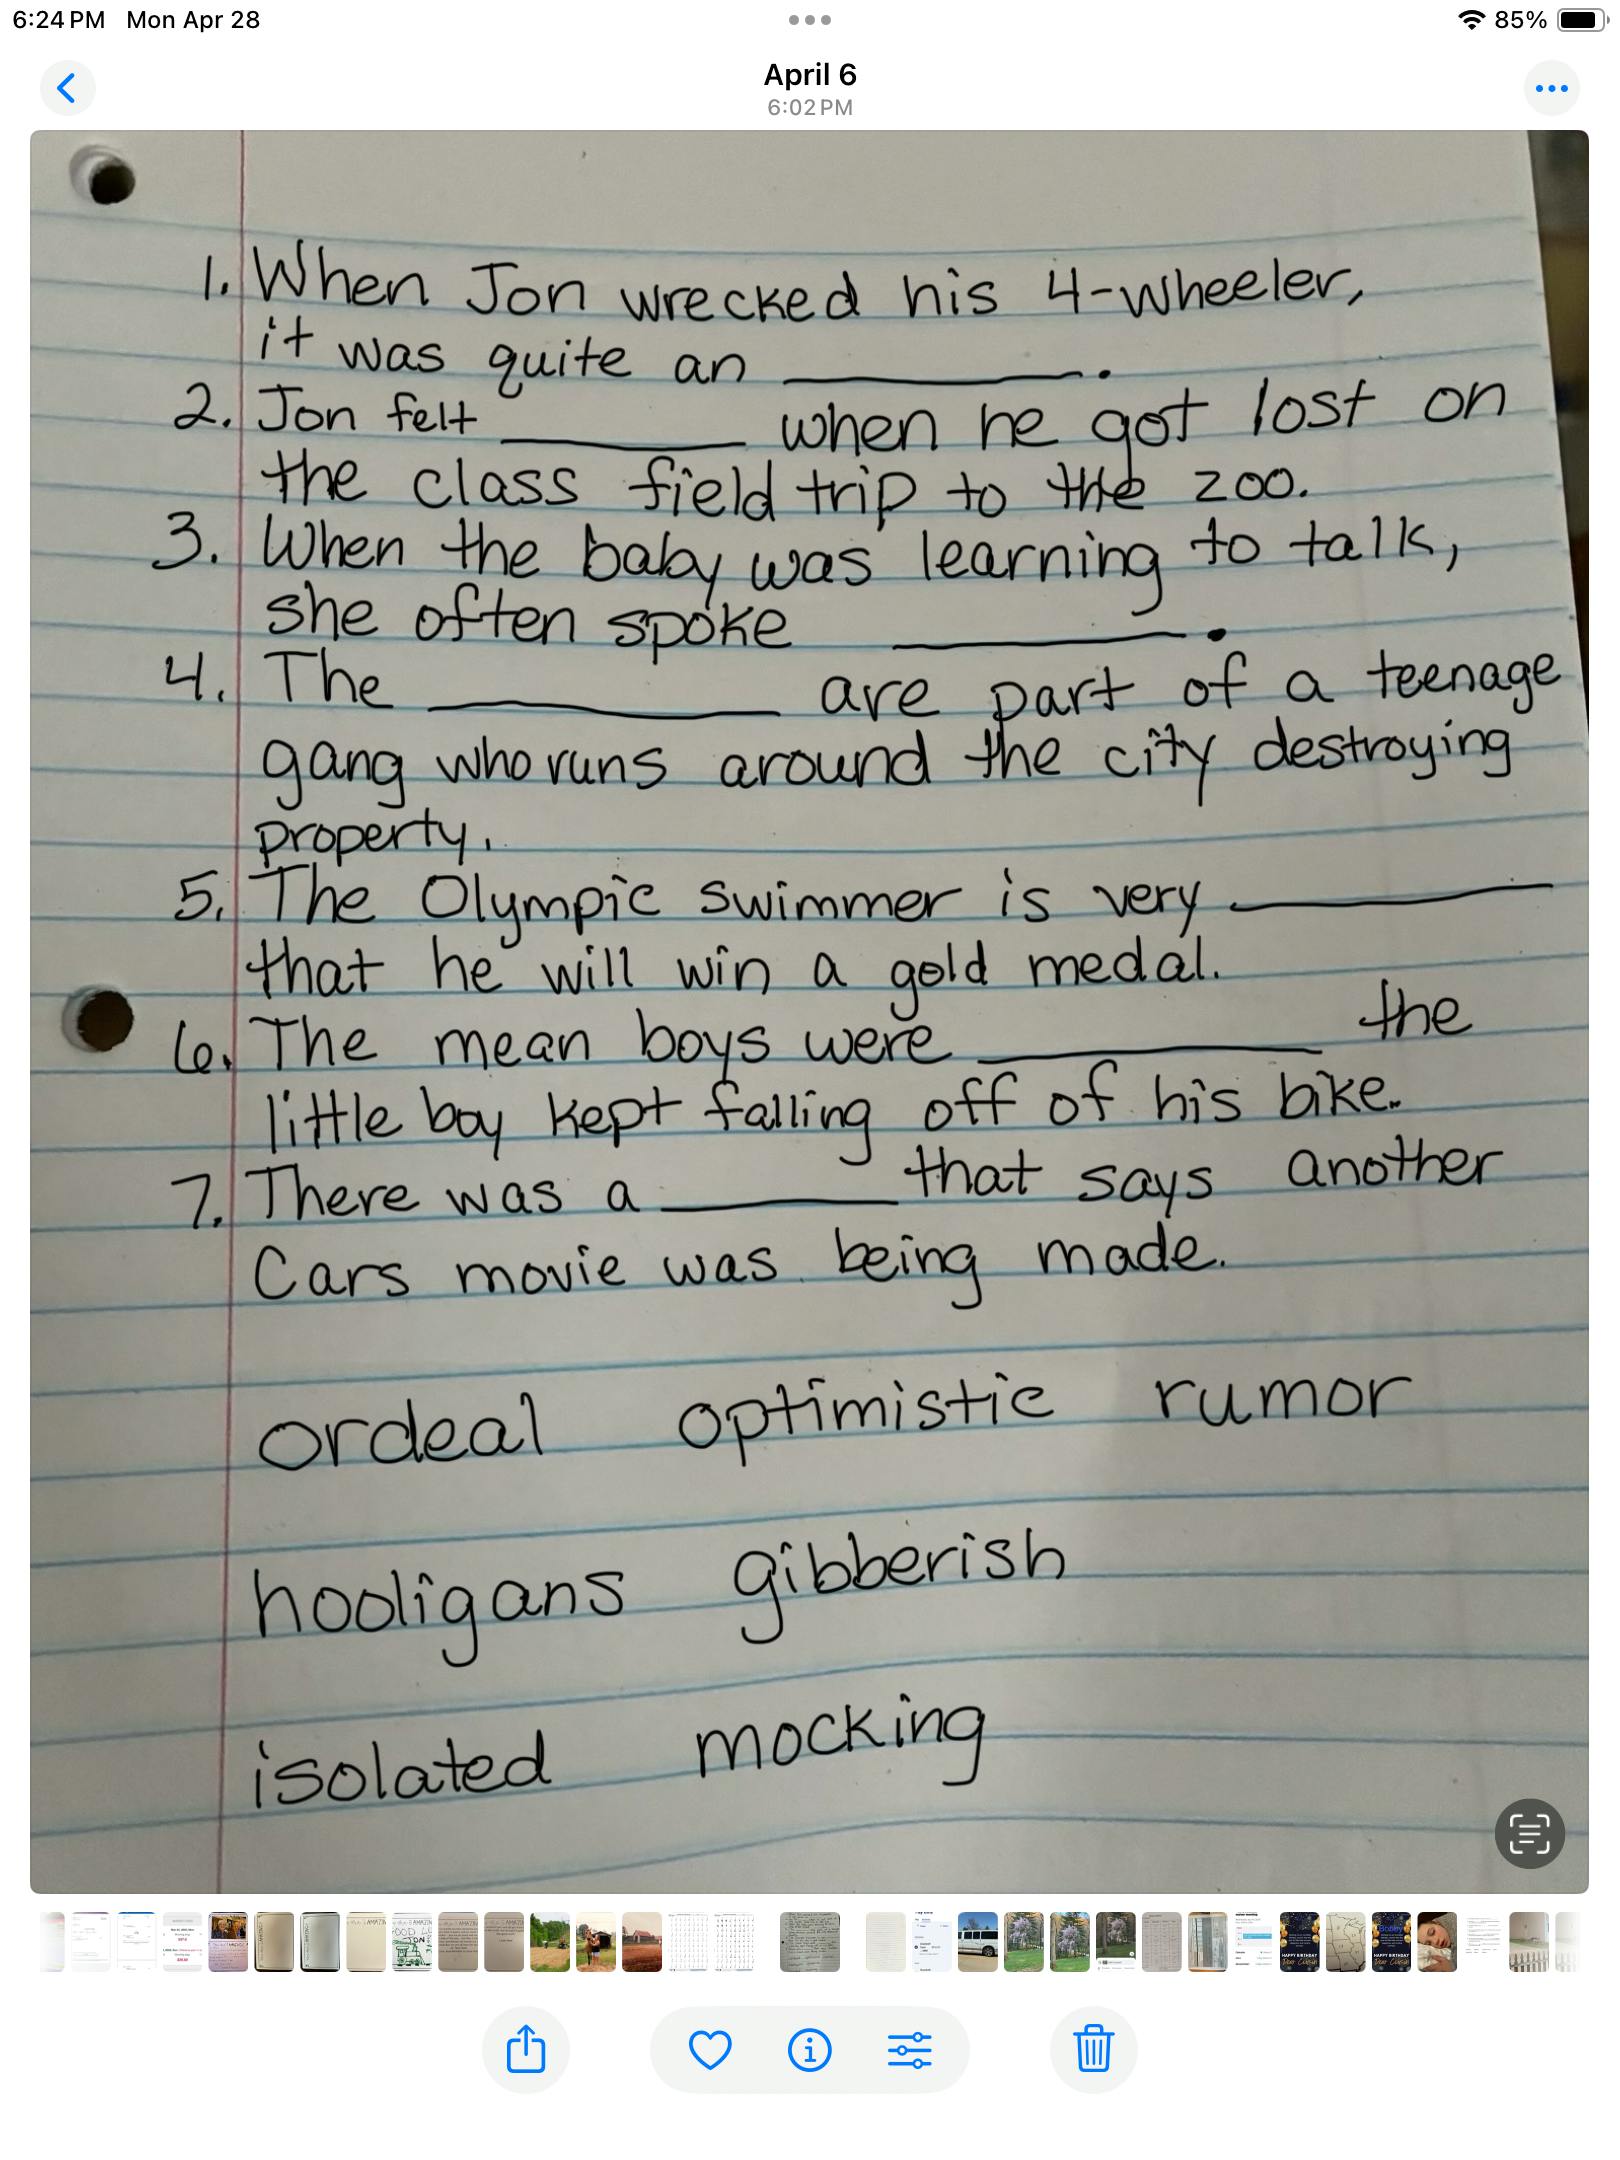 6:24 PM Mon Apr 28
85%
April 6
6:02 PM
1. When Jon wrecked his 4-wheeler,
it was quite an ________.
2. Jon felt ________ when he got lost on
the class field trip to the zoo.
3. When the baby was learning to talk,
she often spoke ________.
4. The ________ are part of a teenage
gang who runs around the city destroying
property.
5. The Olympic swimmer is very ________
that he will win a gold medal.
6. The mean boys were ________ the
little boy kept falling off of his bike.
7. There was a ________ that says another
Cars movie was being made.
ordeal optimistic rumor
hooligans gibberish
isolated mocking